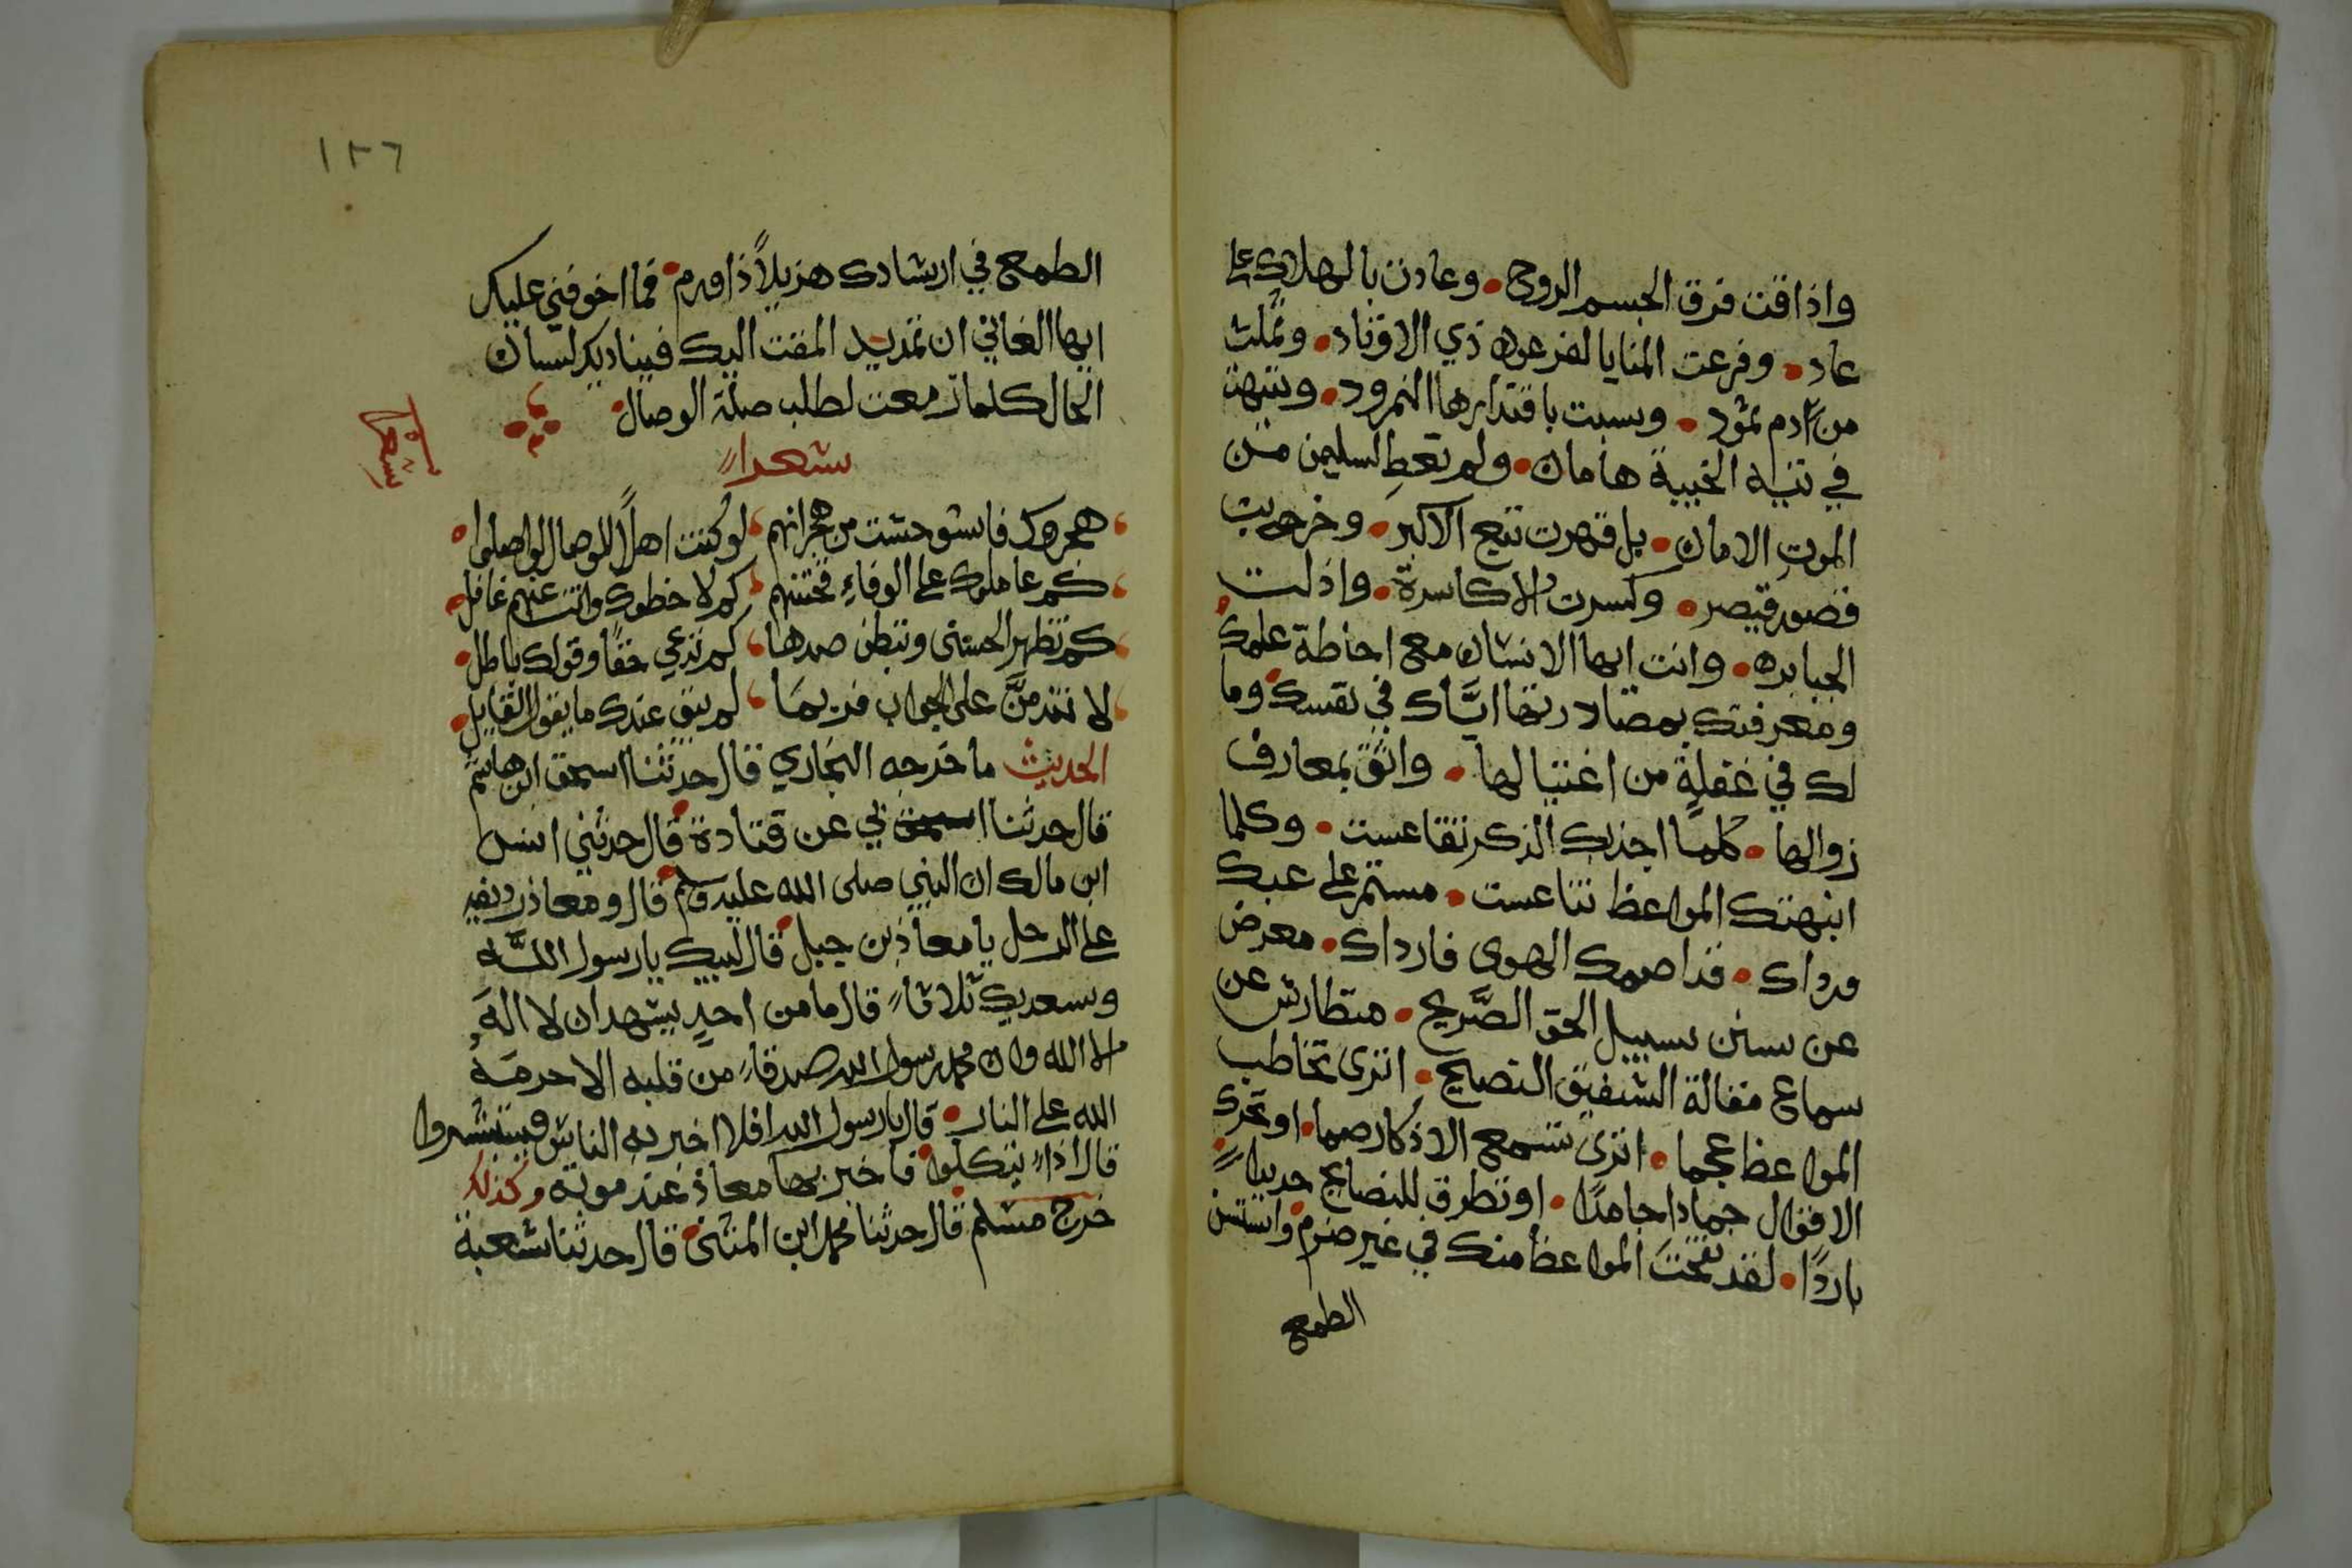 واذاقت فرق الجسم الروح • وعادت بالهلاك على
عاد • وفرعت المنايا لفرعون ذي الاوتاد • وثملت
من آدم ثمود • وسبت باقتدارها النمرود • وتيهت
في تيه الخيبة هامان • ولم تعط لسليمن من
الموت الامان • بل قهرت تبع الاكبر • وخربت
قصور قيصر • وكسرت الاكاسرة • واذلت
الجبابره • وانت ايها الانسان مع احاطة علمك
ومعرفتك بمصادرتها اياك في نفسك • وما
لك في غفلة من اغتيالها • واثق بمعارف
زوالها • كلما اجذبك الذكر تقاعست • وكلما
انبهتك المواعظ تناعست • مستمر على عبك
ورداك • قد اصمك الهوى فارداك • معرض
عن سنن سبيل الحق الصريح • متطارش عن
سماع مقالة الشفيق النصيح • اترى تخاطب
المواعظ عجما • اترى تسمع الاذكار صما • او تحرك
الاقوال جمادا جامدا • او تطرق للنصايح حديدا
باردا • لقد نفخت المواعظ منك في غير ضرم • واستسن
الطمع
١٣٦
الطمع في ارشادك هزيلا ذا ورم • فما اخوفني عليك
ايها الغاني ان تمد يد المقت اليك فيناديك لسان
الحال كلما رمت لطلب صلة الوصال
شعرا
شعر
هجروك فاستوحشت من هجرانهم ، لو كنت اهلا للوصال لواصلوا
كم عاملوك على الوفاء فخنتهم ، كم لاحظوك وانت عنهم غافل
كم تظهر الحسنى وتبطن ضدها ، كم تدعي حقا وقولك باطل
لا تقدمن على الجواب فربما ، لم يبق عندك ما يقول القايل
الحديث ما خرجه البخاري قال حدثنا اسحق ابن هاشم
قال حدثنا ابي عن قتادة قال حدثني انس
ابن مالك ان النبي صلى الله عليه وسلم قال ومعاذ رديفه
على الرحل يا معاذ بن جبل قال لبيك يا رسول الله
وسعديك ثلاثا قال ما من احد يشهد ان لا اله
الا الله وان محمد رسول الله صدقا من قلبه الا حرمه
الله على النار • قال يا رسول الله افلا اخبر به الناس فيستبشروا
قال اذا يتكلوا فاخبر بها معاذ عند موته وكذلك
خرج مسلم قال حدثنا محمد ابن المثنى قال حدثنا شعبة